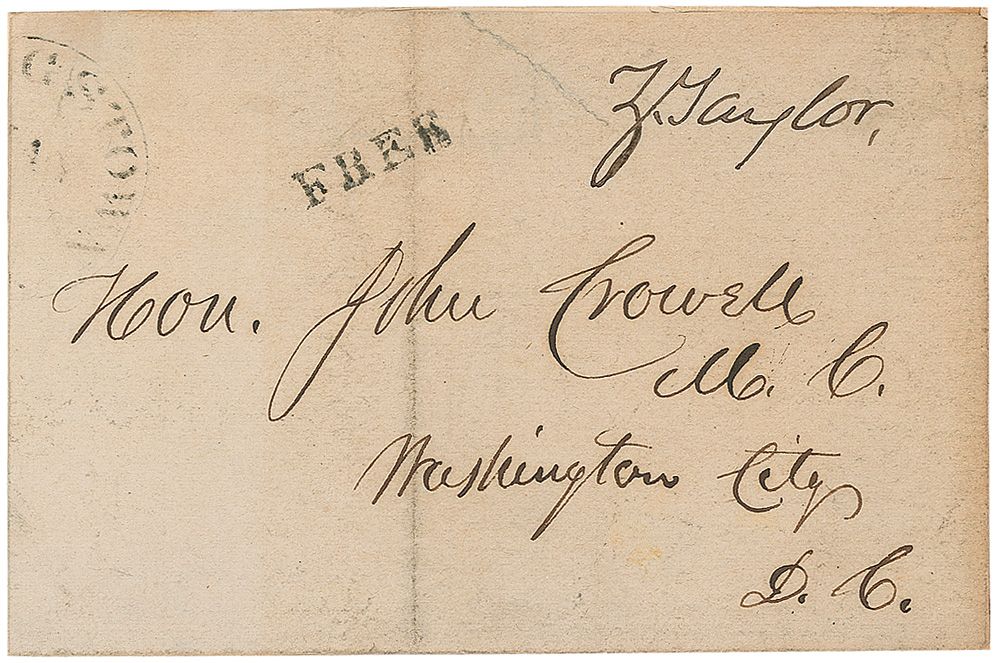 Z. Taylor,
FREE
Hon. John Crowell
M. C.
Washington City
D. C.